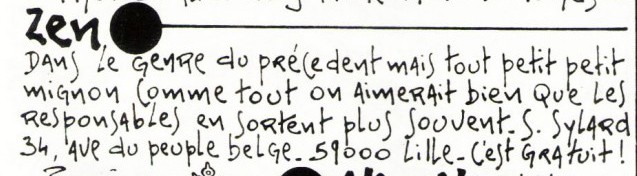 Zen
DANS le GENRE du PRÉCEdent MAIS tout petit petit
mignon Comme tout on AIMERAit bien QUE LES
RESponSAbLES en SORtENt pluS SouVent_ S. SylARd
34, AVE du peuple belGE_ 59000 LillE_ C'ESt GRATuit !